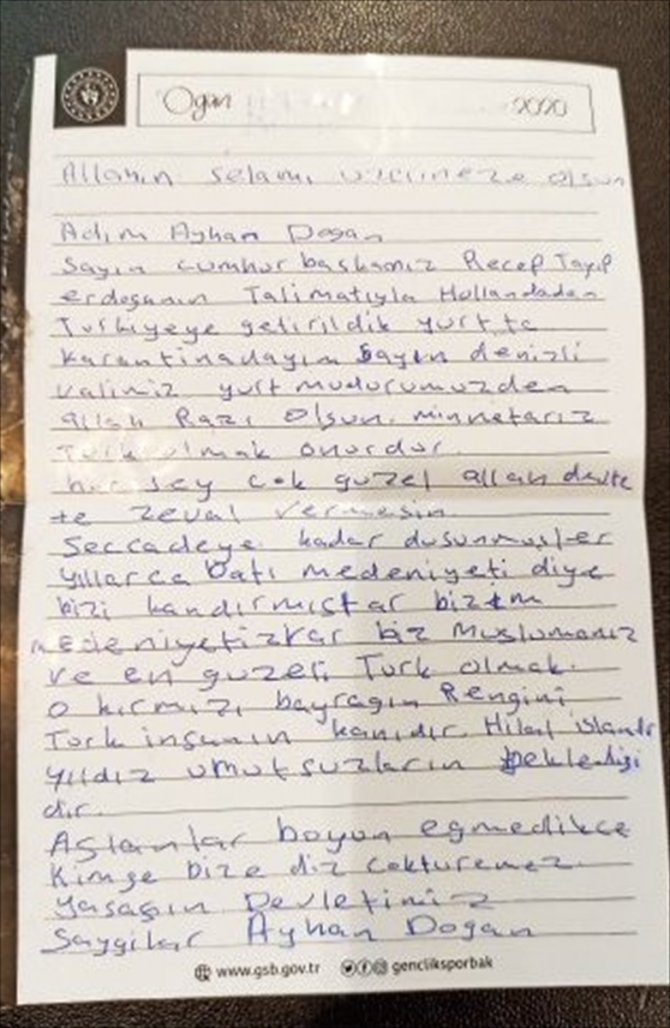 Ogan 2020
Allahın selamı üzerinize olsun
Adım Ayhan Dogan
Sayın cumhur baskanız Recep Tayıp
erdoganın Talimatıyla Hollandadan
Turkiyeye getirildik yurtta
karantinadayım Sayın denizli
valimiz yurt mudurumuzden
allah Razı Olsun. minnetarız
Turk olmak onurdur.
her sey cok guzel allah devle
te zeval vermesin
Seccadeye kadar dusunmusler
yıllarca batı medeniyeti diye
bizi kandırmıstar bizım
medeniyetizkar biz Muslumanız
ve en guzeli Turk olmak.
O kırmızı bayragın Rengini
Turk insanın kanıdır. Hilal islamdr
yıldız umutsuzların bekledigi
dir.
Aslanlar boyun egmedikce
Kimse bize diz cokturemez.
yasasın Devletimiz
Saygılar Ayhan Dogan
www.gsb.gov.tr gencliksporbak